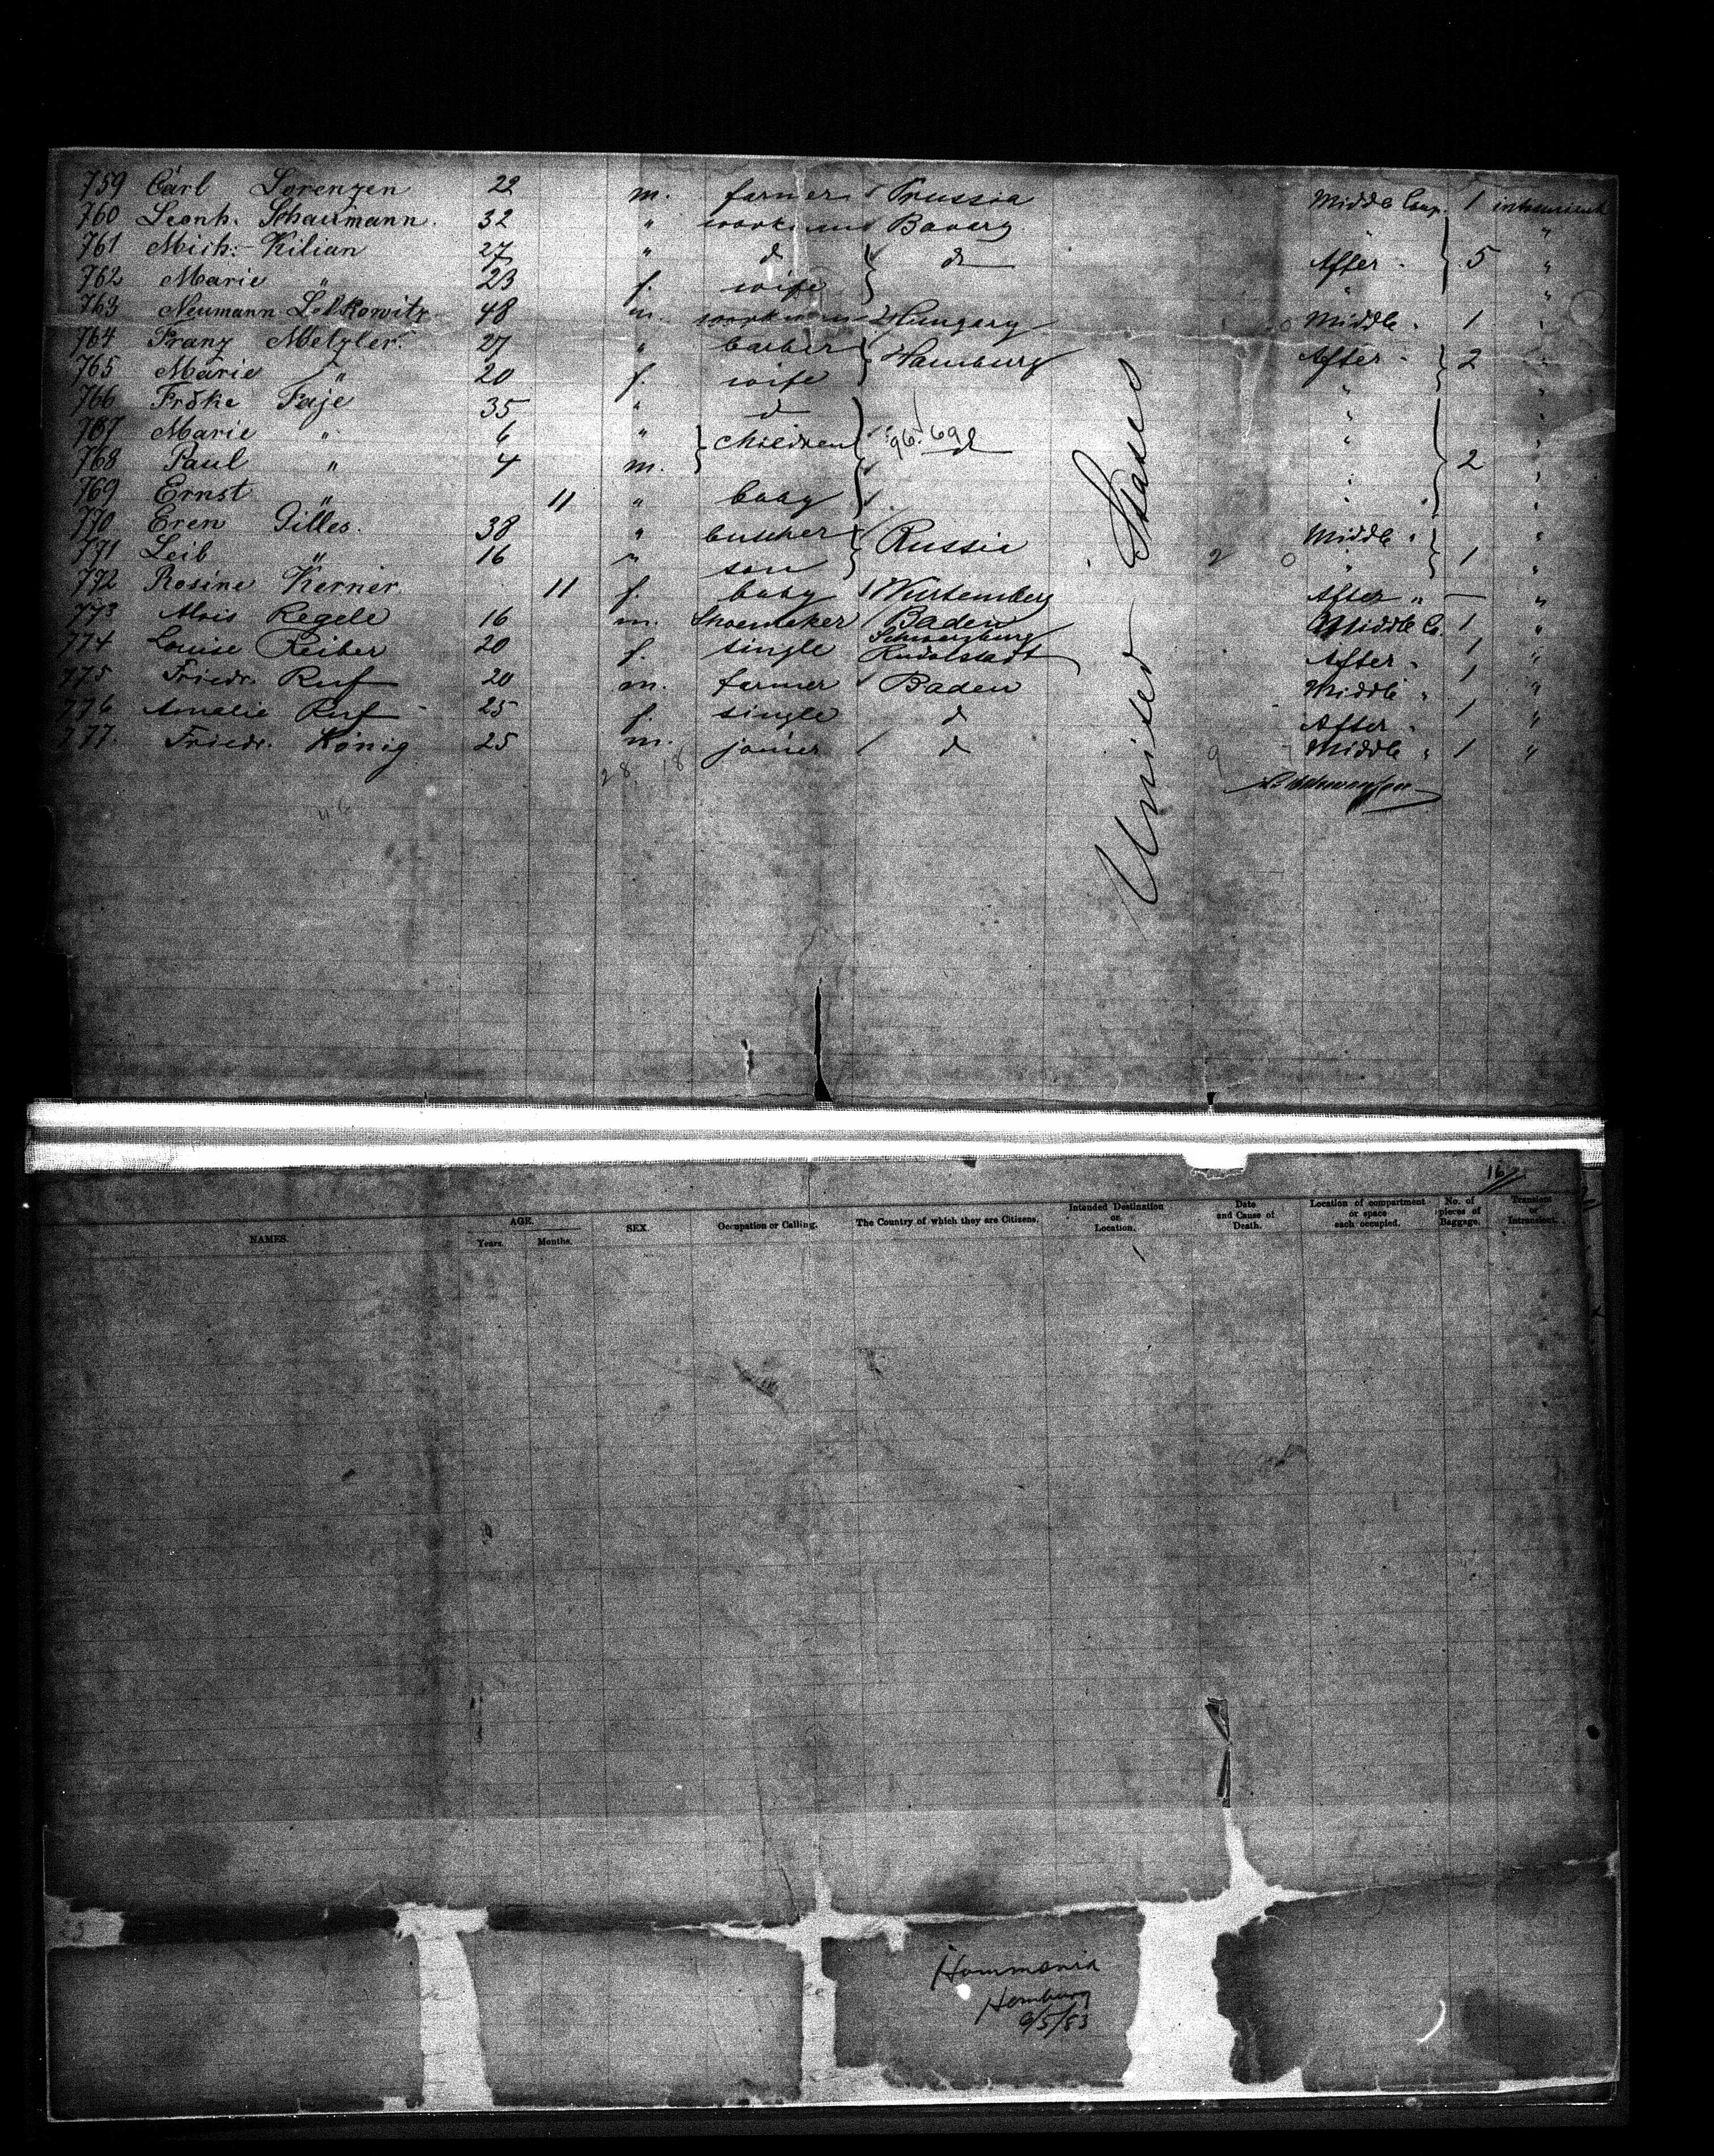 759 Carl Lorenzen 22 m. farmer Prussia Middle Comp. 1 intransient
760 Leonh. Schaumann. 32 " workman Bavary " "
761 Mich: Kilian 27 " d d After " 5 "
762 Marie " 23 f. wife " "
763 Neumann Lefkowitz 48 m. workman Hungary Middle " 1 "
764 Franz Metzler. 27 " barber Hamburg After " 2 "
765 Marie " 20 f. wife " "
766 Fröke Faje 35 " d " "
767 Marie " 6 " children 96.69 d " "
768 Paul " 4 m. " 2 "
769 Ernst " 11 " baby " " "
770 Eren Gilles. 38 " butcher Russia Middle " "
771 Leib " 16 " son 2 0 " 1 "
772 Rosine Kerner 11 f. baby Würtemberg After " — "
773 Alois Regele 16 m. Shoemaker Baden Middle Co. 1 "
774 Louise Reiber 20 f. single Schwarzburg Rudolstadt After " 1 "
775 Friedr. Ruf 20 m. farmer Baden Middle " 1 "
776 Amalie Ruf 25 f. single d After " 1 "
777. Friedr. König 25 m. joiner d 9 Middle " 1 "
28 18
United States
16
NAMES. AGE. Years. Months. SEX. Occupation or Calling. The Country of which they are Citizens. Intended Destination or Location. Date and Cause of Death. Location of compartment or space each occupied. No. of pieces of Baggage. Transient or Intransient.
Hammonia
Hamburg
6/5/83